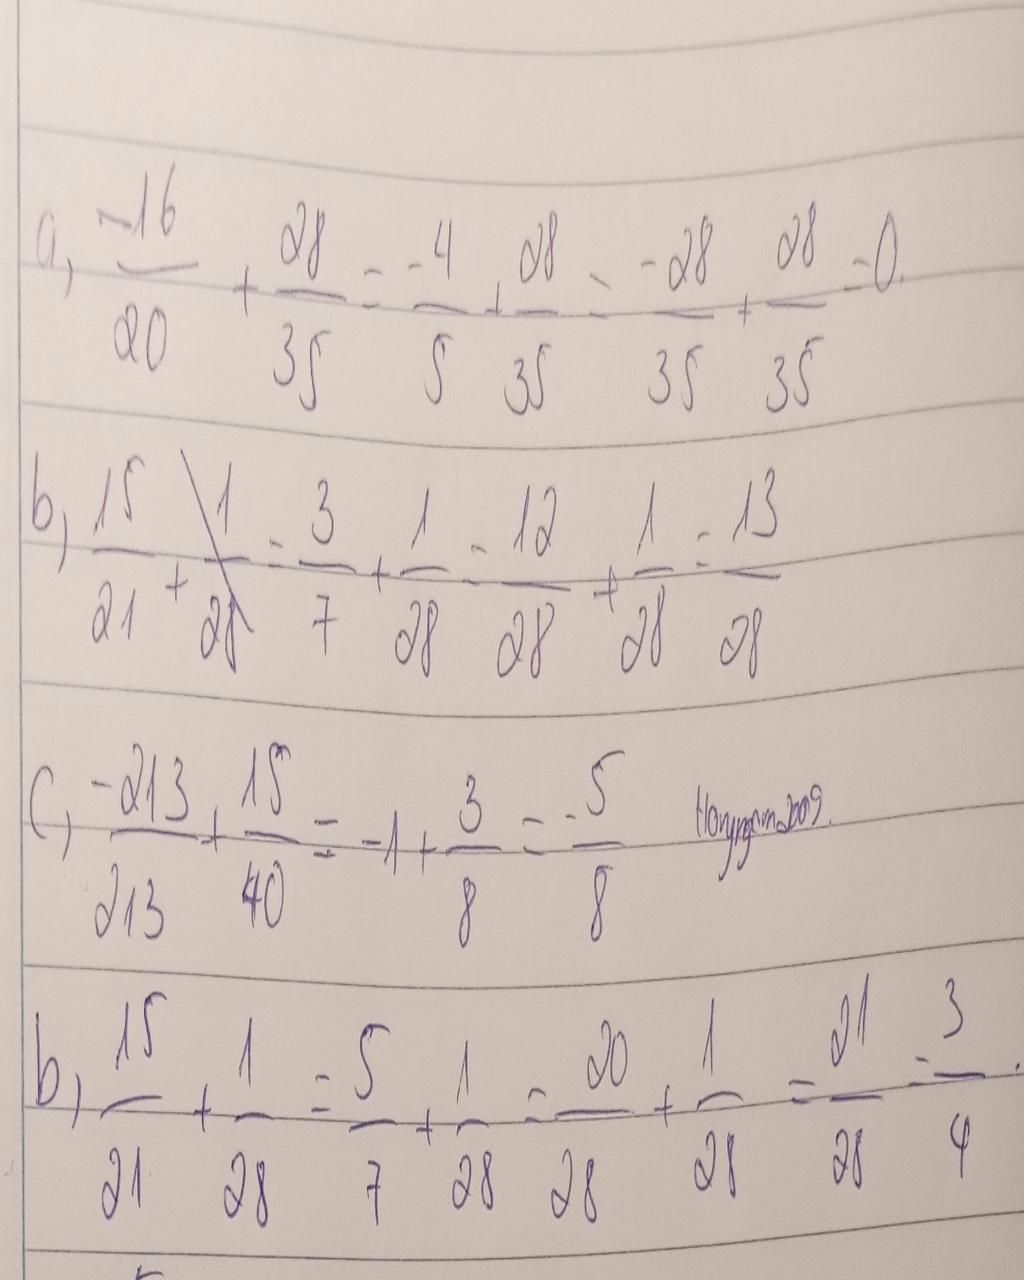 a, -16/20 + 28/35 = -4/5 + 28/35 = -28/35 + 28/35 = 0.
b, 15/21 + 1/28 = 3/7 + 1/28 = 12/28 + 1/28 = 13/28
c, -213/213 + 15/40 = -1 + 3/8 = -5/8
b, 15/21 + 1/28 = 5/7 + 1/28 = 20/28 + 1/28 = 21/28 = 3/4.